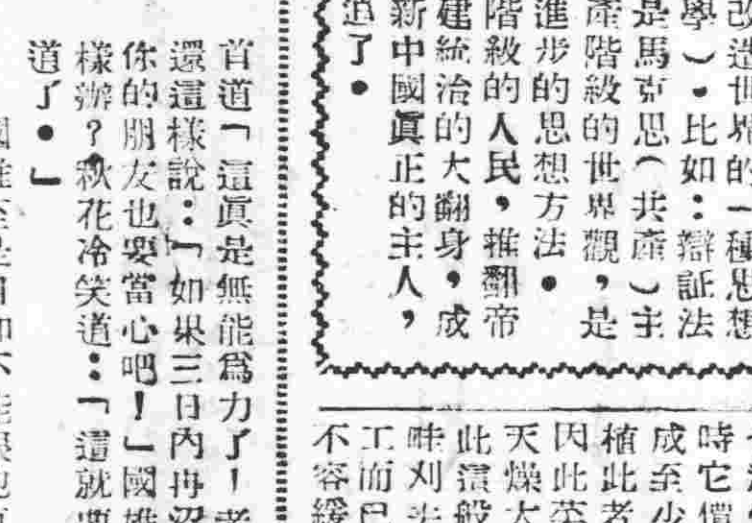 改造世界的一種思想
學）。比如：辯証法
是馬克思（共產）主
產階級的世界觀，是
進步的思想方法。
階級的人民，推翻帝
建統治的大翻身，成
新中國眞正的主人，
了。
時它
成至少
植此者
因此
天燥大
此這般
畦刈
工而已
不容緩
首道「這眞是無能爲力了！
還這樣說：「如果三日內再沒
你的朋友也要當心吧！」國雄
樣辦？秋花冷笑道：「這就要
道了。」